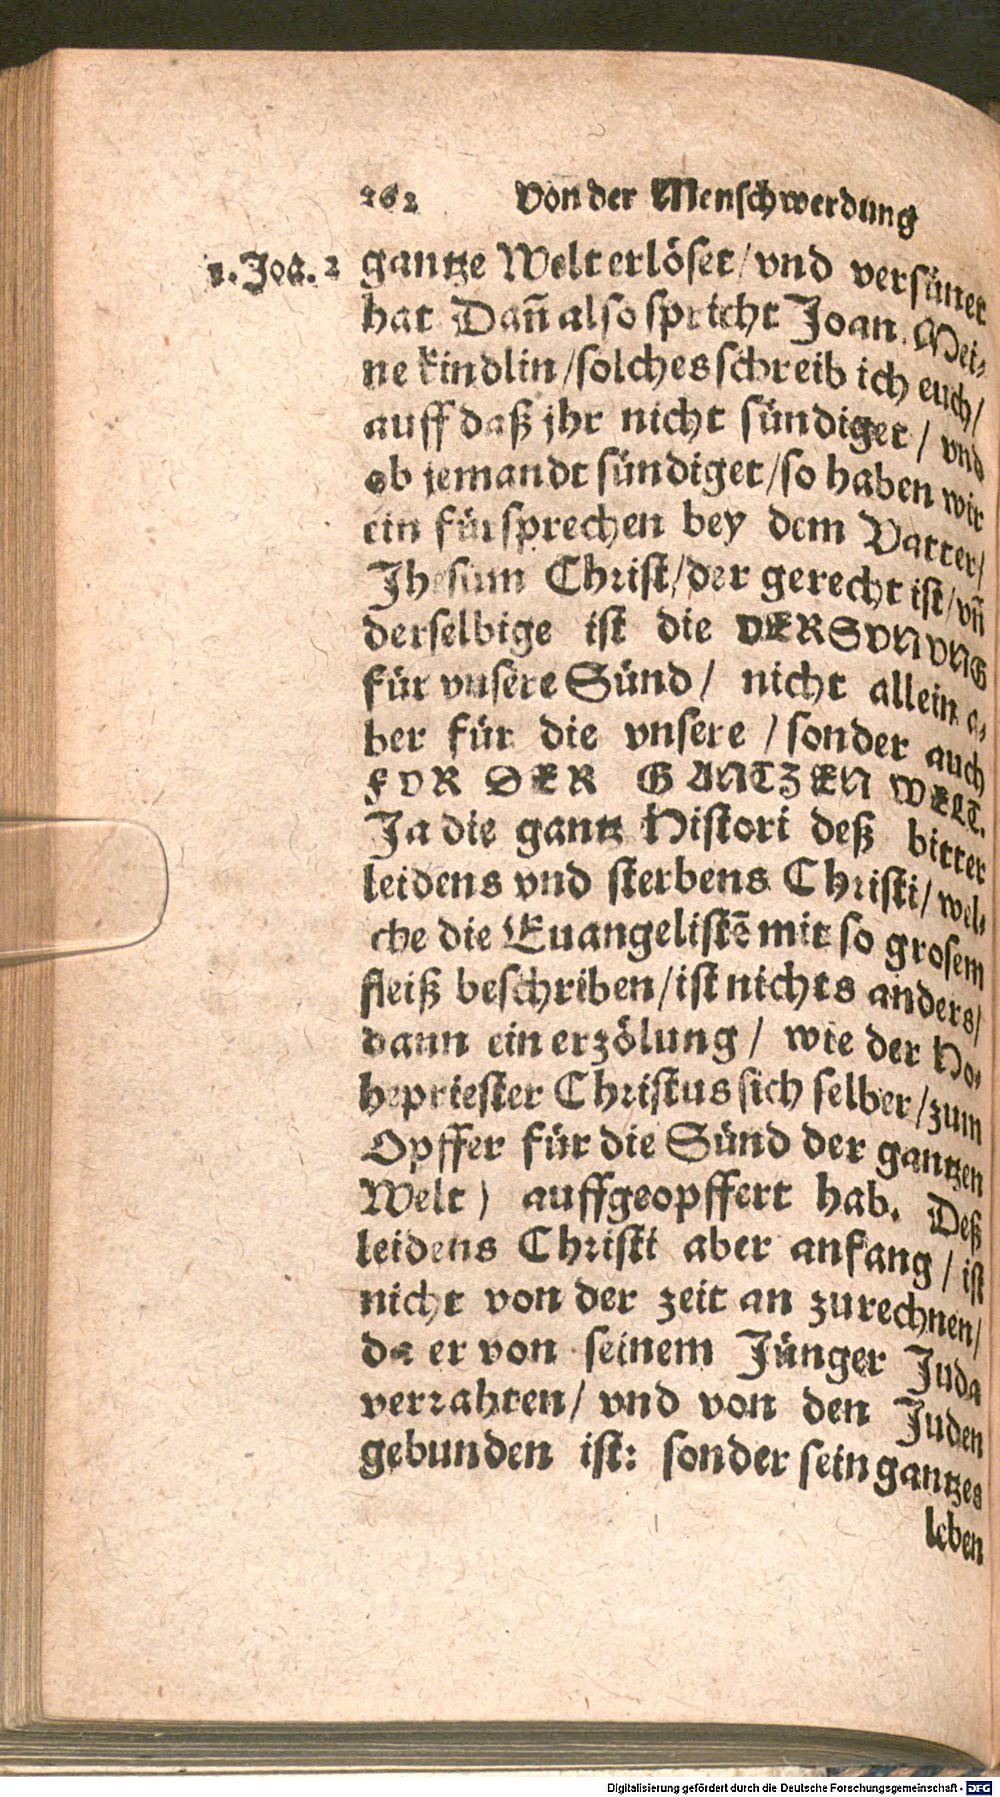 262 Von der Menschwerdung
1. Joa. 2
gantze Welt erlöset/vnd versünet
hat Dañ also spricht Joan. Mei-
ne kindlin/solches schreib ich euch/
auff daß jhr nicht sündiget/ vnd
ob jemandt sündiget/so haben wir
ein fürsprechen bey dem Vatter/
Jhesum Christ/der gerecht ist/vñ
derselbige ist die VERSVNVNG
für vnsere Sünd/ nicht allein a-
ber für die vnsere/sonder auch
FVR DER GANTZEN WELT.
Ja die gantz Histori deß bitter
leidens vnd sterbens Christi/wel-
che die Euangelistē mit so grosem
fleiß beschriben/ist nichts anders/
dann ein erzölung/ wie der Ho-
hepriester Christus sich selber/zum
Opffer für die Sünd der gantzen
Welt) auffgeopffert hab. Deß
leidens Christi aber anfang/ist
nicht von der zeit an zurechnen/
da er von seinem Jünger Juda
verrahten/ vnd von den Juden
gebunden ist: sonder sein gantzes
leben
Digitalisierung gefördert durch die Deutsche Forschungsgemeinschaft - DFG